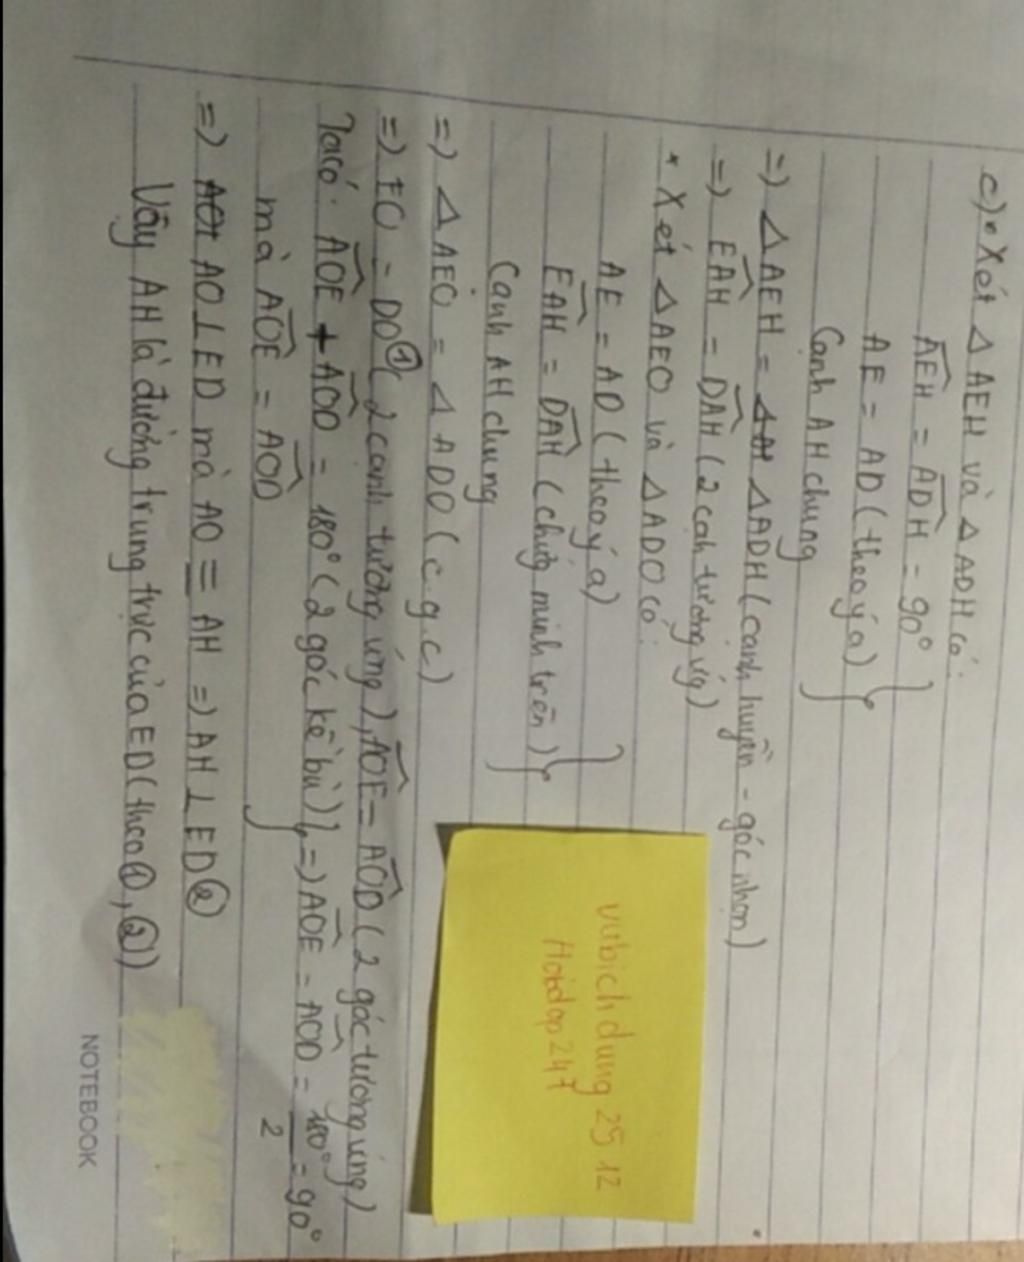 c) • Xét △ AEH và △ ADH có:
AEH = ADH = 90°
AE = AD (theo ý a)
Cạnh AH chung
=) △AEH = △ADH (cạnh huyền - góc nhọn)
=) EAH = DAH (2 cạh tương ứg)
• Xét △AEO và △ADO có:
AE = AD (theo ý a)
EAH = DAH (chứg minh trên)
Cạnh AH chung
=) △AEO = △ADO (c.g.c)
=) EO = DO ① (2 cạnh tương ứng), AOE = AOD (2 góc tương ứng)
Ta có: AOE + AOD = 180° (2 góc kề bù) =) AOE = AOD = 180°/2 = 90°
mà AOE = AOD
=) AO ⊥ ED mà AO ≡ AH =) AH ⊥ ED ②
Vậy AH là đường trung trực của ED (theo ①, ②)
vubichdung 25 12
Hoidap247
NOTEBOOK